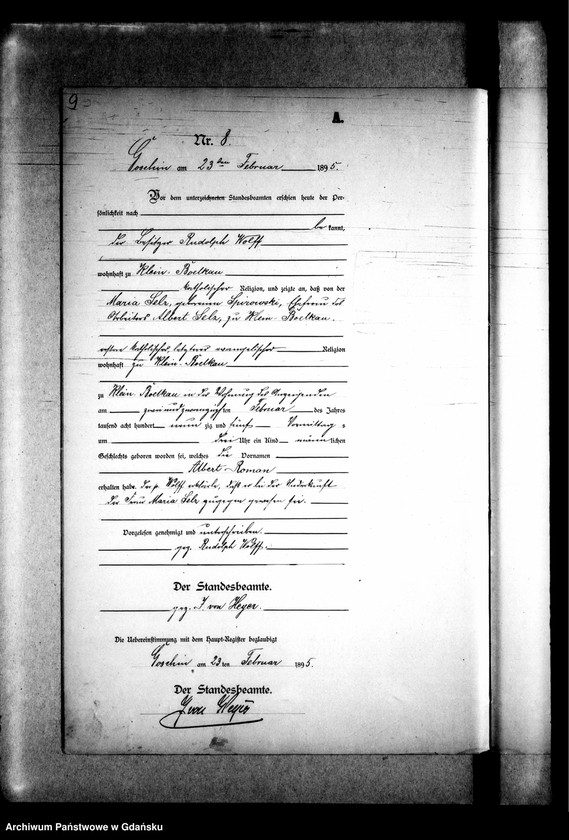 9
A.
Nr. 8.
Goschin am 23ten Februar 1895.
Vor dem unterzeichneten Standesbeamten erschien heute der Per-
sönlichkeit nach
be kannt,
der Besitzer Rudolph Wolff
wohnhaft zu Klein-Boelkau
katholischer Religion, und zeigte an, daß von der
Maria Selz, geborenen Spirowski, Ehefrau des
Arbeiters Albert Selz, zu Klein Boelkau.
erstere katholischer, letzterer evangelischer Religion
wohnhaft zu Klein-Boelkau
zu Klein Boelkau in der Wohnung des
am zweiundzwanzigsten Februar des Jahres
tausend acht hundert neun zig und fünf Vormittag s
um drei Uhr ein Kind männlichen
Geschlechts geboren worden sei, welches die Vornamen
Albert Roman
erhalten habe. Der p. Wolff erklärte, daß er bei der Niederkunft
der Frau Maria Selz zugegen gewesen sei.
Vorgelesen genehmigt und unterschrieben.
gez. Rudolph Wolff.
Der Standesbeamte.
gez. von Heyer.
Die Uebereinstimmung mit dem Haupt-Register beglaubigt
Goschin am 23 ten Februar 1895.
Der Standesbeamte.
von Heyer
Archiwum Państwowe w Gdańsku